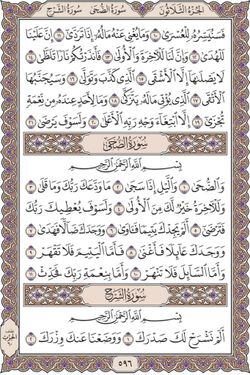 الجزء الثلاثون سورة الضحى سورة الشرح
فَسَنُيَسِّرُهُ لِلْعُسْرَىٰ ١٠ وَمَا يُغْنِي عَنْهُ مَالُهُ إِذَا تَرَدَّىٰ ١١ إِنَّ عَلَيْنَا
لَلْهُدَىٰ ١٢ وَإِنَّ لَنَا لَلْآخِرَةَ وَالْأُولَىٰ ١٣ فَأَنذَرْتُكُمْ نَارًا تَلَظَّىٰ ١٤
لَا يَصْلَاهَا إِلَّا الْأَشْقَى ١٥ الَّذِي كَذَّبَ وَتَوَلَّىٰ ١٦ وَسَيُجَنَّبُهَا
الْأَتْقَى ١٧ الَّذِي يُؤْتِي مَالَهُ يَتَزَكَّىٰ ١٨ وَمَا لِأَحَدٍ عِندَهُ مِن نِّعْمَةٍ
تُجْزَىٰ ١٩ إِلَّا ابْتِغَاءَ وَجْهِ رَبِّهِ الْأَعْلَىٰ ٢٠ وَلَسَوْفَ يَرْضَىٰ ٢١
سورة الضحى
بِسْمِ اللَّهِ الرَّحْمَٰنِ الرَّحِيمِ
وَالضُّحَىٰ ١ وَاللَّيْلِ إِذَا سَجَىٰ ٢ مَا وَدَّعَكَ رَبُّكَ وَمَا قَلَىٰ ٣
وَلَلْآخِرَةُ خَيْرٌ لَّكَ مِنَ الْأُولَىٰ ٤ وَلَسَوْفَ يُعْطِيكَ رَبُّكَ
فَتَرْضَىٰ ٥ أَلَمْ يَجِدْكَ يَتِيمًا فَآوَىٰ ٦ وَوَجَدَكَ ضَالًّا فَهَدَىٰ ٧
وَوَجَدَكَ عَائِلًا فَأَغْنَىٰ ٨ فَأَمَّا الْيَتِيمَ فَلَا تَقْهَرْ ٩
وَأَمَّا السَّائِلَ فَلَا تَنْهَرْ ١٠ وَأَمَّا بِنِعْمَةِ رَبِّكَ فَحَدِّثْ ١١
سورة الشرح
بِسْمِ اللَّهِ الرَّحْمَٰنِ الرَّحِيمِ
أَلَمْ نَشْرَحْ لَكَ صَدْرَكَ ١ وَوَضَعْنَا عَنكَ وِزْرَكَ ٢
٥٩٦